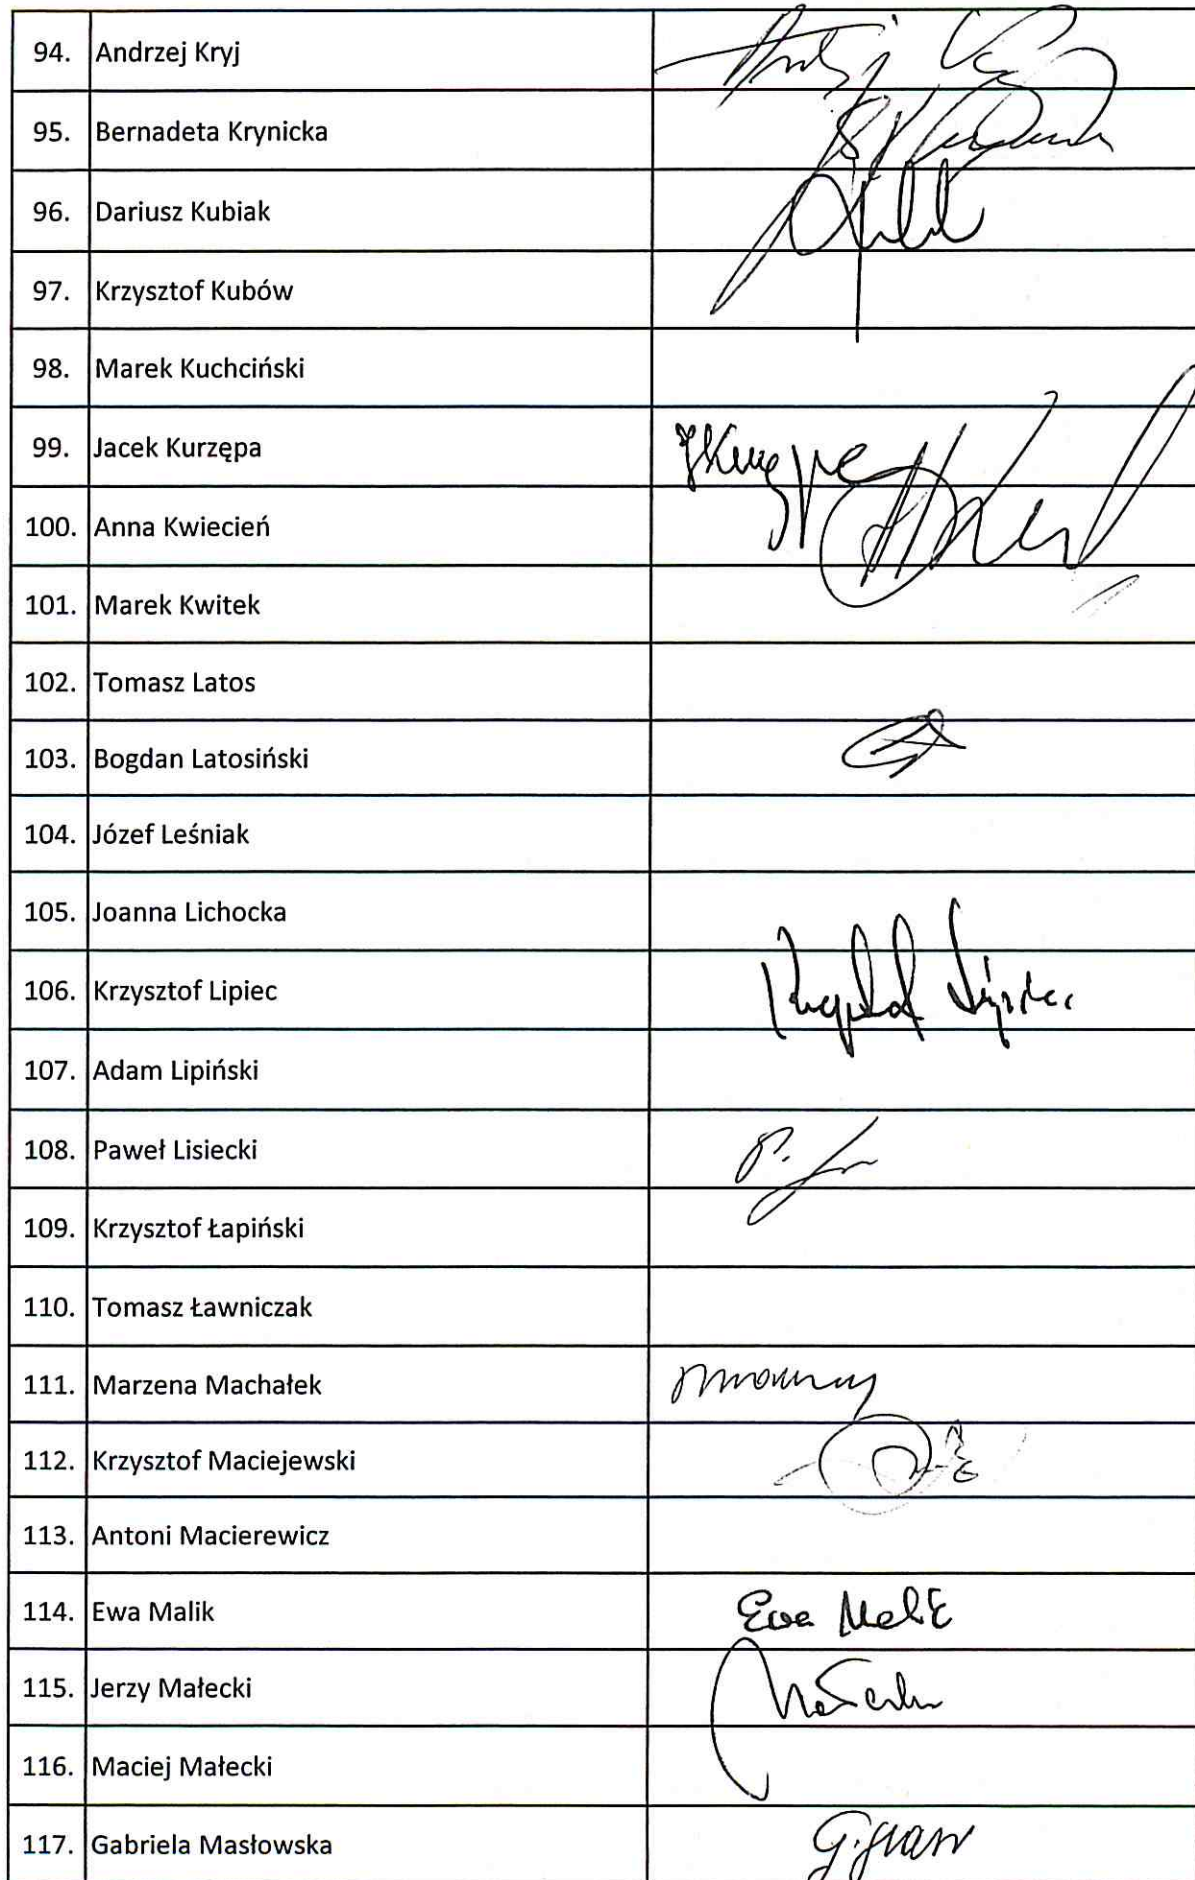 94. Andrzej Kryj
95. Bernadeta Krynicka
96. Dariusz Kubiak
97. Krzysztof Kubów
98. Marek Kuchciński
99. Jacek Kurzępa
100. Anna Kwiecień
101. Marek Kwitek
102. Tomasz Latos
103. Bogdan Latosiński
104. Józef Leśniak
105. Joanna Lichocka
106. Krzysztof Lipiec
107. Adam Lipiński
108. Paweł Lisiecki
109. Krzysztof Łapiński
110. Tomasz Ławniczak
111. Marzena Machałek
112. Krzysztof Maciejewski
113. Antoni Macierewicz
114. Ewa Malik Ewa Malik
115. Jerzy Małecki
116. Maciej Małecki
117. Gabriela Masłowska